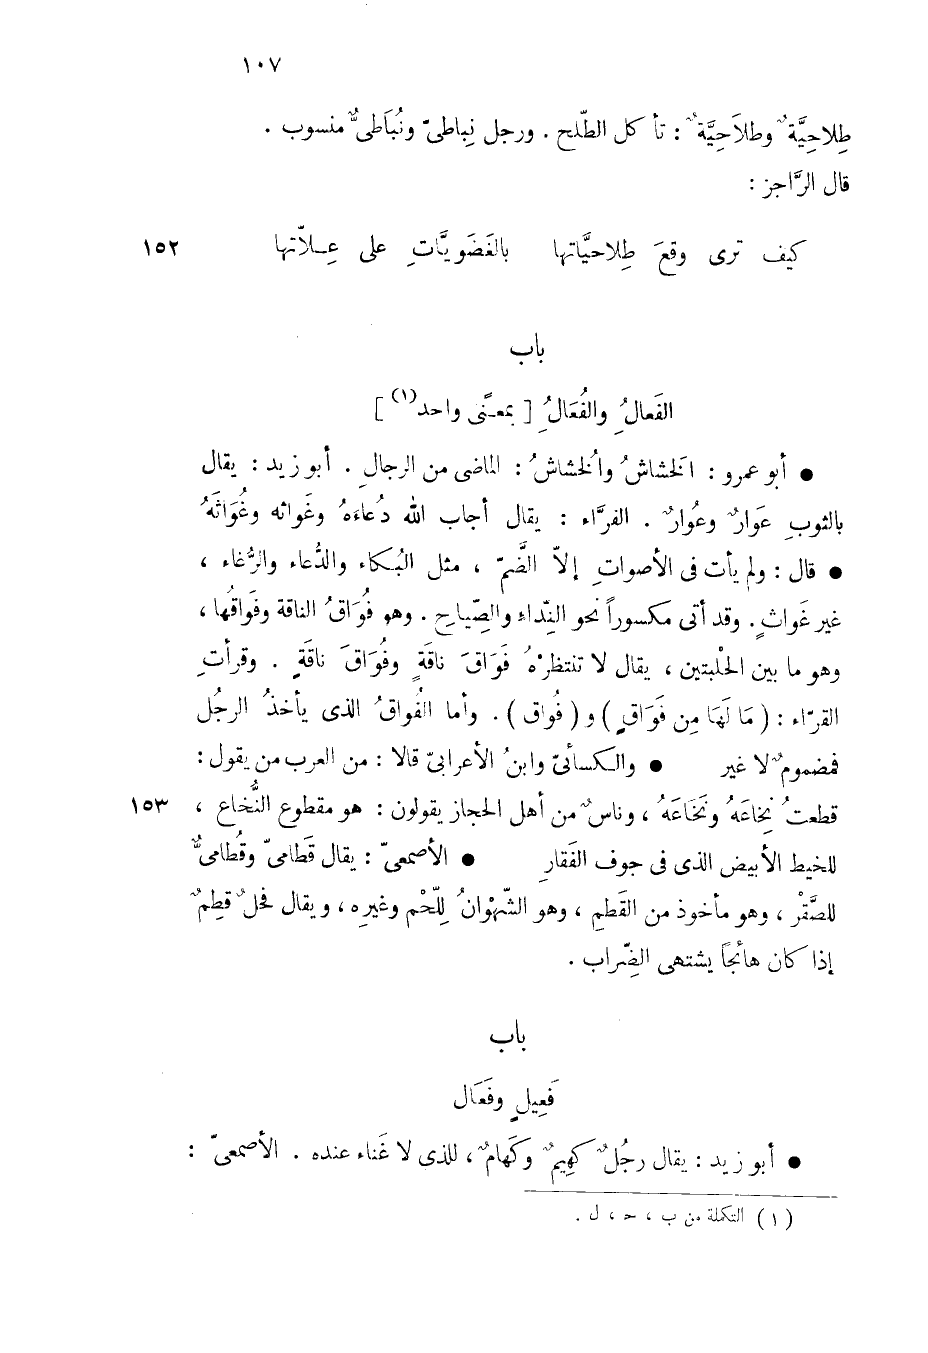 ١٠٧
طِلاحِيَّةٌ وطلاَحِيَّةٌ : تأكل الطّلح . ورجل نِباطىّ ونُبَاطىٌّ منسوب .
قال الرَّاجز :
كيف ترى وقعَ طِلاحيَّاتها بالغَضَويَّاتِ على عِـلاّتها ١٥٢
باب
الفَعالُِ والفُعَالُِ [ بمعـنًى واحد(١) ]
● أبو عمرو : اَلخشاشُ واُلخشاشُ : الماضى من الرجالِ . أبو زيد : يقال
بالثوبِ عَوارٌ وعُوارٌ . الفرَّاء : يقال أجاب الله دُعاءَهُ وغَواثه وغُوَاثَهُ
● قال : ولم يأت فى الأصواتِ إلاّ الضَّمّ ، مثل البُـكاء والدُّعاء والرُّغاء ،
غير غَواثٍ . وقد أتى مكسوراً نحو النِّداءِ والصِّياحِ . وهو فُوَاقُ الناقة وفَواقُها ،
وهو ما بين الحلْبتين ، يقال لا تنتظرْهُ فَوَاقَ ناقَةٍ وفُوَاقَ ناقَةٍ . وقرأتِ
القرّاء : ( مَا لَهَا مِن فَوَاقٍ ) و ( فُواق ) . وأما الفُواقُ الذى يأخذُ الرجُل
فمضمومٌ لا غير ● والـكسائىّ وابنُ الأعرابىّ قالا : من العرب من يقول :
قطعتُ نِخاعَهُ ونَخَاعَهُ ، وناسٌ من أهل الحجاز يقولون : هو مقطوع النُّخاع ، ١٥٣
للخيط الأبيض الذى فى جوف الفَقارِ ● الأصمعىّ : يقال قَطامىّ وقُطامىٌّ
للصَّقْر ، وهو مأخوذ من القَطمِ ، وهو الشّهْوانُ لِلّحْم وغيرِه ، ويقال فحلٌ قطِمٌ
إذا كان هائجاً يشتهى الضِّراب .
باب
فَعِيلٍ وفَعَال
● أبو زيد : يقال رجُلٌ كهِيمٌ وكَهامٌ ، للذى لا غَناء عنده . الأصمعىّ :
(١) التكملة من ب ، ح ، ل .